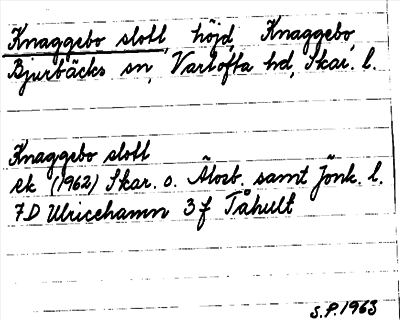 Knaggebo slott, höjd, Knaggebo,
Bjurbäcks sn, Vartofta hd, Skar. l.
Knaggebo slott
ek (1962) Skar. o. Älvsb. samt Jönk. l.
7D Ulricehamn 3f Tåhult
S.P. 1963